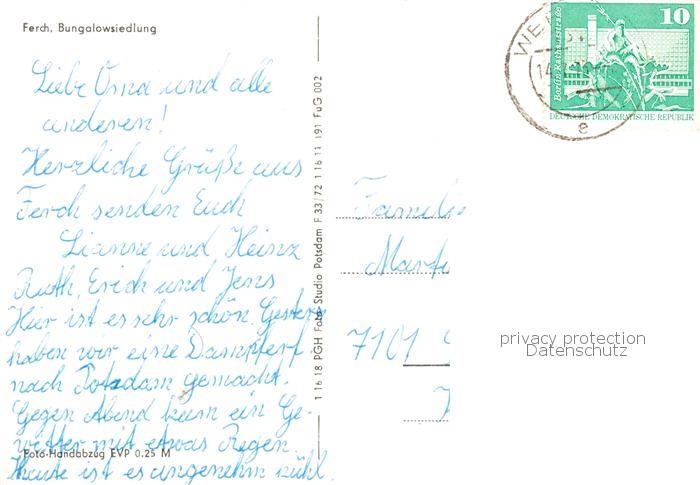 Ferch, Bungalowsiedlung
Liebe Oma und alle
anderen!
Herzliche Grüße aus
Ferch senden Euch
Lianne und Heinz
Ruth, Erich und Jens
Hier ist es sehr schön. Gestern
haben wir eine Dampferf.
nach Potsdam gemacht.
Gegen Abend kam ein Ge-
witter mit etwas Regen.
Heute ist es angenehm kühl.
Foto-Handabzug EVP 0.25 M
1 16 18 PGH Foto-Studio Potsdam F 33/72 1 16 11 191 FuG 002
Familie
7101
10
Berlin, Rathausstraße
DEUTSCHE DEMOKRATISCHE REPUBLIK
WE
14
e
privacy protection
Datenschutz